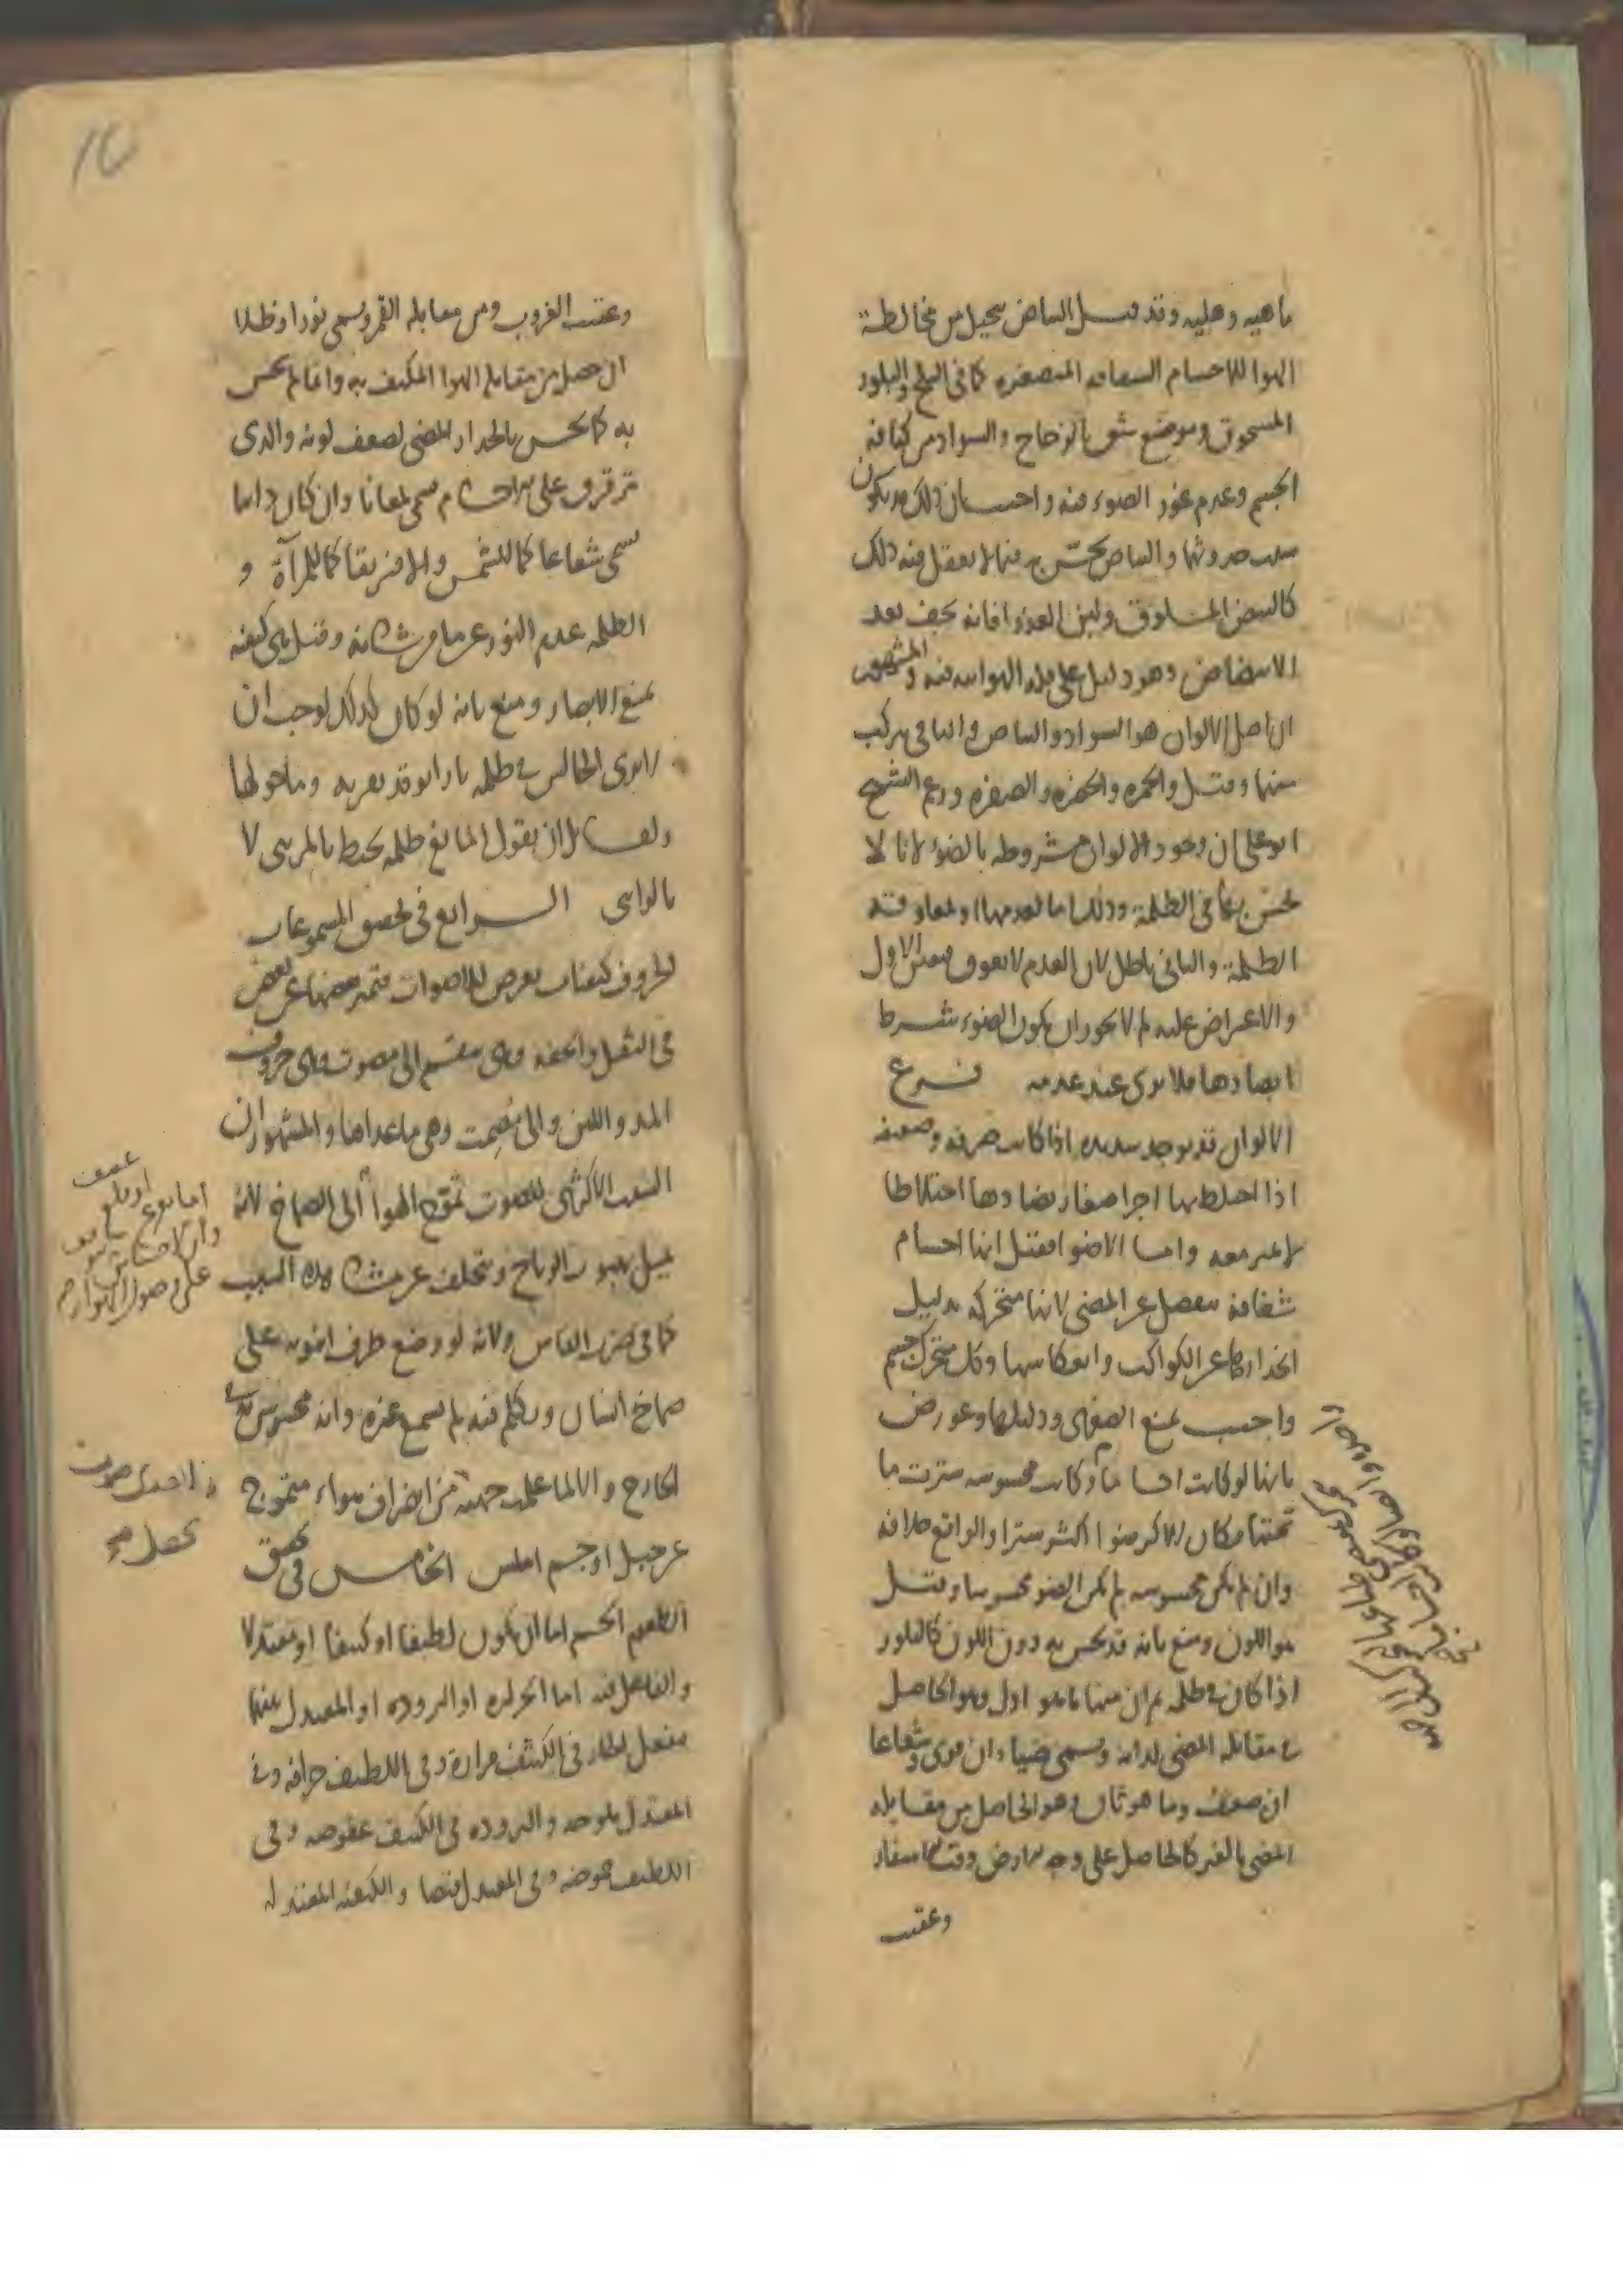 ماهيه وهليه وقد قيل البياض يتخيل من مخالطة
الهوا للاجسام الشفافه المتصغره كما في الثلج والبلور
المسحوق وموضع شق الزجاج والسواد من كثافه
الجسم وعدم غور الضوء فيه واجيب بان ذلك قد يكون
سبب حدوثها والبياض يحس به فيما لا يعقل فيه ذلك
كالبيض المسلوق ولبن العذرا فانه يجف بعد
الابيضاض وهو دليل على قله الهوائيه فيه والمشهور
ان اصل الالوان هو السواد والبياض والباقي يركب
منهما وقيل والحمره والخضره والصفره وزعم الشيخ
ابو علي ان وجود الالوان مشروطه بالضوء لانا لا
نحس بها في الظلمة وذلك اما لعدمها او لمعاوقه
الظلمة والثاني باطل لان العدم لا يعوق فتعين الاول
والاعتراض عليه لم لا يجوز ان يكون الضوء شرط
ابصارها فلا يرى عند عدمه فرع
الالوان قد توجد شديده اذا كانت صرفه وضعيفه
اذا اختلط بها اجزا صغار تضادها اختلاطا
لا يميز معه واما الاضوا فقيل انها اجسام
شفافه تنفصل عن المضي لانها متحركه بدليل
انحدارها عن الكواكب وانعكاسها وكل متحرك جسم
واجيب بمنع الصغرى ودليلها وعورض
بانها لو كانت اجساما وكانت محسوسه سترت ما
تحتها فكان الاكثر ضوا اكثر سترا والواقع خلافه
وان لم يكن محسوسه لم يكن الضو محسوسا وقيل
هو اللون ومنع بانه قد يحس به دون اللون كالبلور
اذا كان في ظلمه ثم ان منها ما هو اول وهو الحاصل
في مقابله المضي لذاته ويسمى ضياء ان قوى وشعاعا
ان ضعف وما هو ثان وهو الحاصل من مقابله
المضي بالغير كالحاصل على وجه الارض وقت الاسفار
وعقيب
وعقيب الغروب ومن مقابله القمر ويسمى نورا وظلا
ان حصل من مقابله الهوا المتكيف به وانما لم يحس
به كما يحس بالجدار المضي لضعف لونه والذي
ترقرق على الاجسام سمي لمعانا وان كان ذاتيا
سمى شعاعا كما للشمس والا فبريقا كما للمرآة و
الظلمه عدم النور عن ما من شانه وقيل هي كيفيه
تمنع الابصار ومنع بانه لو كان كذلك لوجب ان
لا يرى الجالس في ظلمه نارا توقد بقربه وما حولها
ولقائل ان يقول المانع ظلمه تحيط بالمرئي لا
بالرائي الرابع في تحقيق المسموعات
الحروف كيفيات تعرض للاصوات فتميز بعضها عن بعض
في الثقل والخفه وهي تنقسم الى مصوت وهي حروف
المد واللين والى مصمت وهي ما عداها والمشهور ان
السبب الاكثري للصوت تموج الهوا الى الصماخ لانه
يميل بهبوب الرياح ويتخلف عن مشاهده السبب
كما في ضرب الفاس ولانه لو وضع طرف انبوبه على
صماخ انسان وتكلم فيه لم يسمع غيره وانه محسوس في
الخارج والا لما علمت جهته من انصراف هواء متموج
عن جبل او جسم املس الخامس في تحقيق
الطعوم الجسم اما ان يكون لطيفا او كثيفا او معتدلا
والفاعل فيه اما الحراره او البروده او المعتدل بينهما
فيفعل الحار في الكثيف مرارة وفي اللطيف حرافه وفي
المعتدل ملوحه والبروده في الكثيف عفوصه وفي
اللطيف حموضه وفي المعتدل قبضا والكيفيه المعتدله